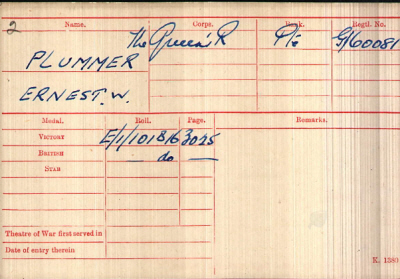 2
Name. Corps. Rank. Regtl. No.
PLUMMER The Queen's R Pte G/60081
ERNEST. W.
Medal. Roll. Page. Remarks.
VICTORY E/1/101B16 3025
BRITISH — do —
STAR
Theatre of War first served in
Date of entry therein
K. 1380